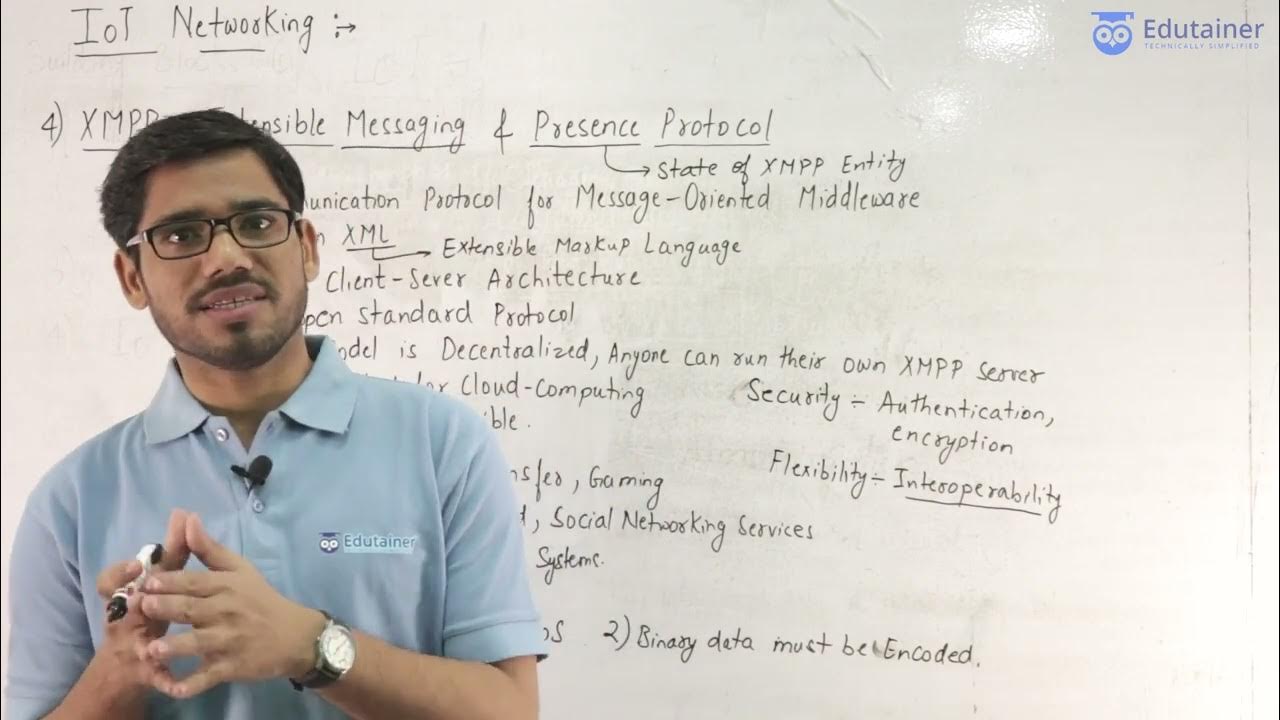 IoT Networking :→
Edutainer
TECHNICALLY SIMPLIFIED
4) XMPP Extensible Messaging & Presence Protocol
→ State of XMPP Entity
unication Protocol for Message-Oriented Middleware
n XML → Extensible Markup Language
Client-Sever Architecture
open Standard Protocol
odel is Decentralized, Anyone can run their own XMPP server
for Cloud-Computing
Security ÷ Authentication,
ible.
encryption
Flexibility ÷ Interoperability
nsfer, Gaming
d, Social Networking Services
Edutainer
Systems.
oS 2) Binary data must be Encoded.